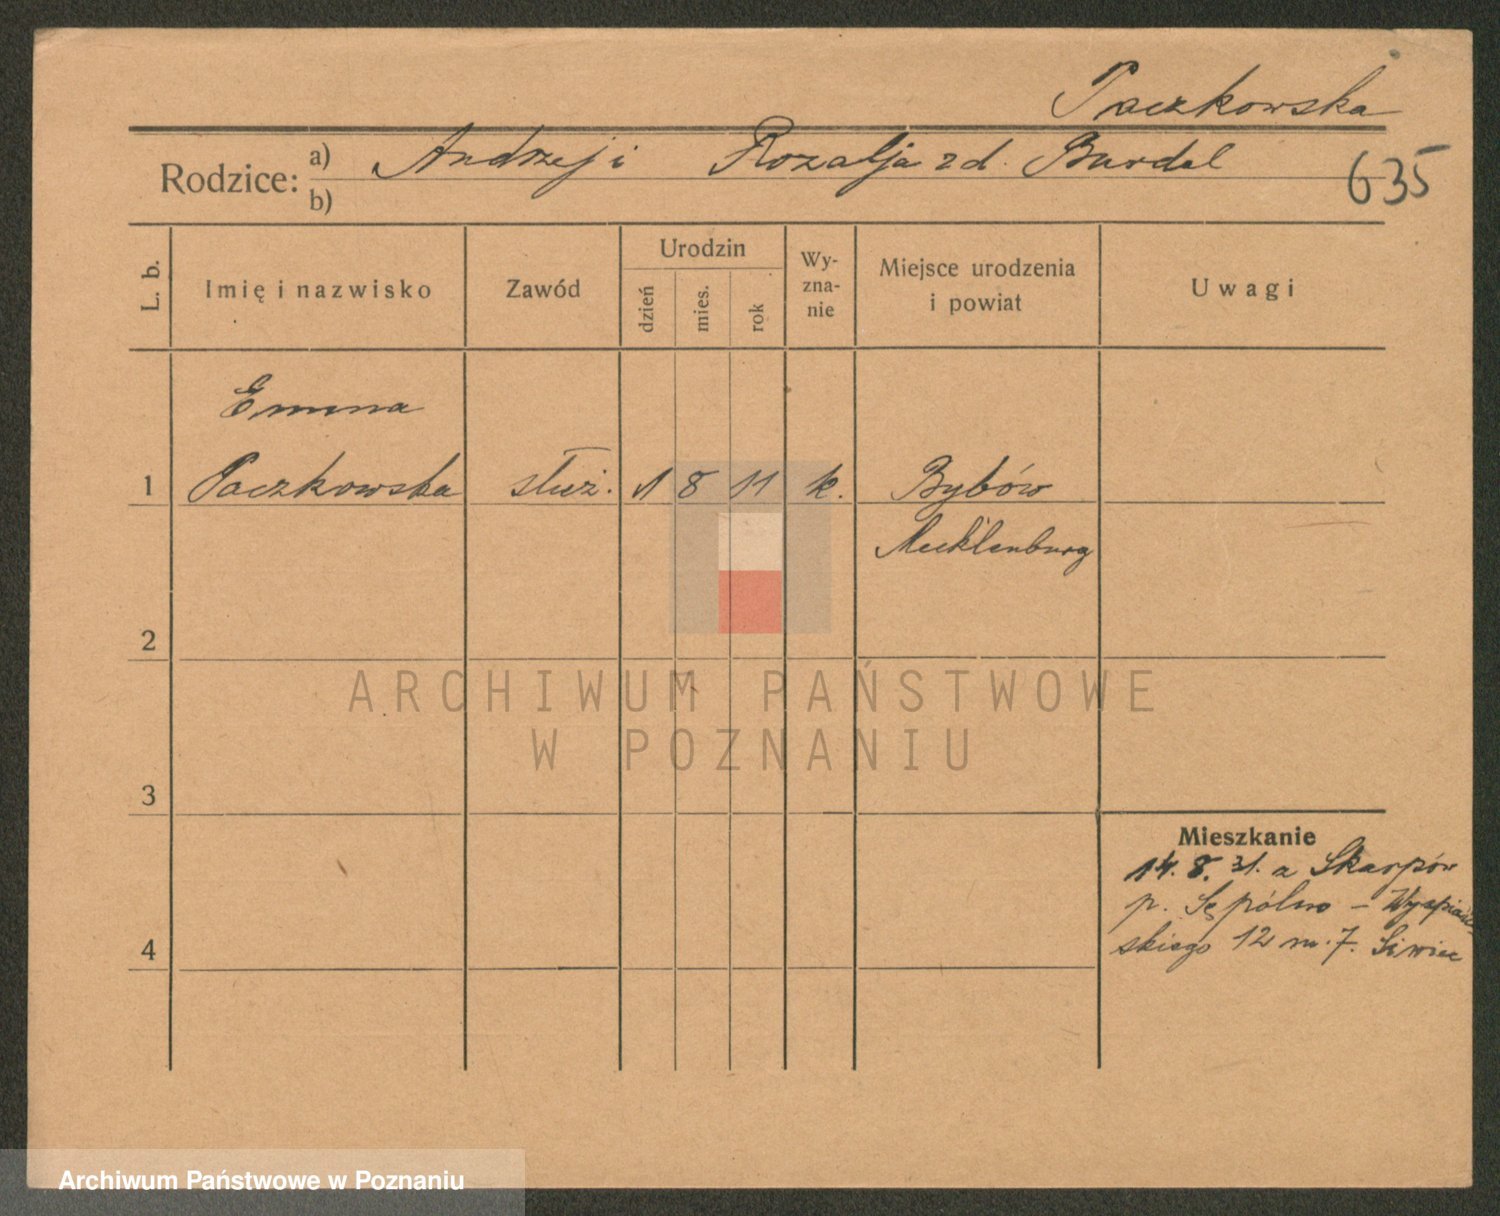 Paczkowska
Rodzice: a) Andrzej i Rozalja z d. Burdel
b)
635
L. b.
Imię i nazwisko
Zawód
Urodzin
dzień
mies.
rok
Wy-
zna-
nie
Miejsce urodzenia
i powiat
Uwagi
Emma
1 Paczkowska służ. 1 8 11 k. Bybów
Mecklenburg
2
ARCHIWUM PAŃSTWOWE
W POZNANIU
3
Mieszkanie
14. 8. 31. a Skarpów
p. Sępólno – Wyspiań-
4
skiego 12 m. 7. Siwiec
Archiwum Państwowe w Poznaniu